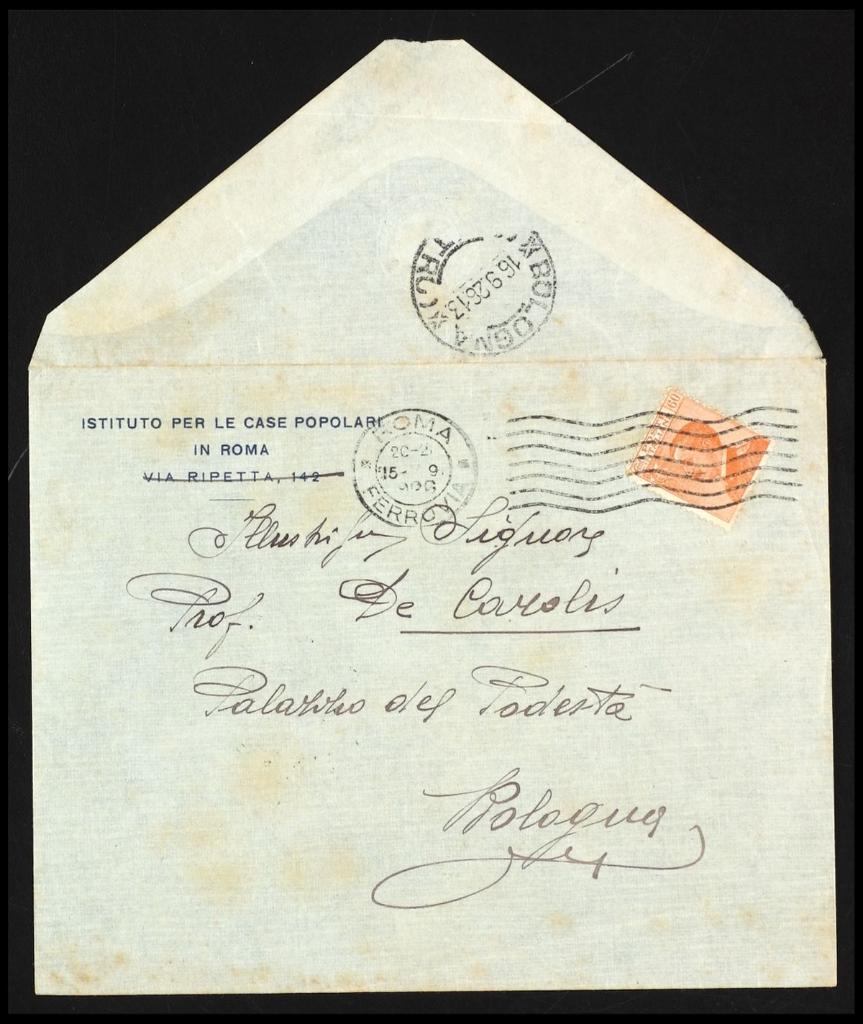 BOLOGNA
16.9.26 13
ISTITUTO PER LE CASE POPOLARI
IN ROMA
VIA RIPETTA, 142
ROMA
FERROVIA
20-2
15- 9.
60
Signore
Prof. De Carolis
Palazzo del Podestà
Bologna